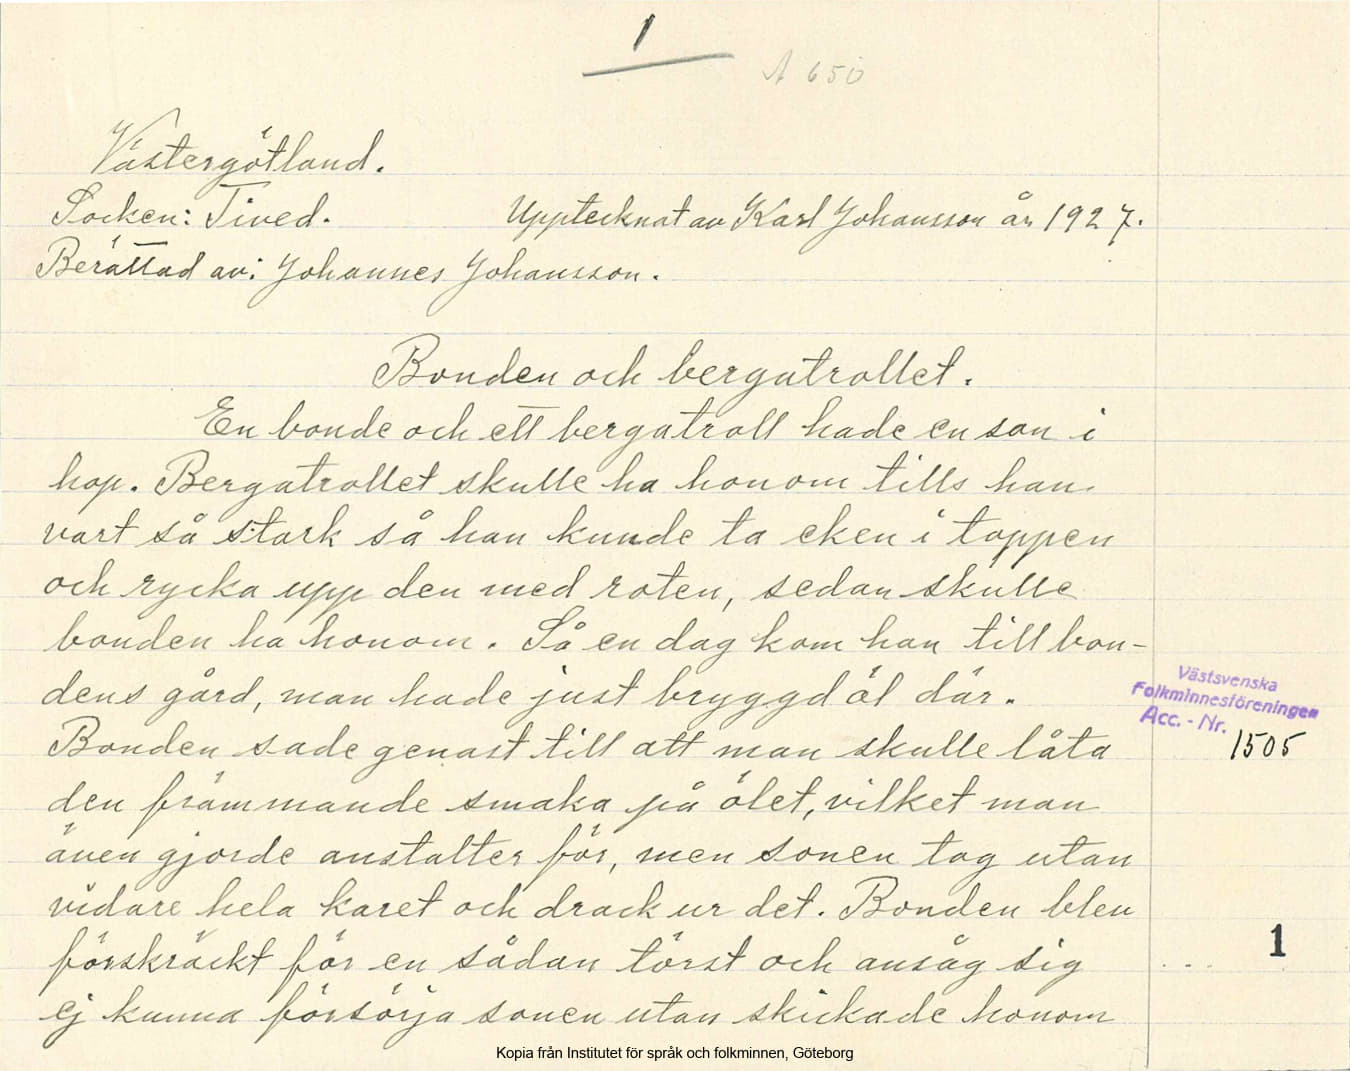 1
A 650
Västergötland.
Socken: Tived. Upptecknat av Karl Johansson år 1927.
Berättad av: Johannes Johansson.
Bonden och bergatrollet.
En bonde och ett bergatroll hade en son i
hop. Bergatrollet skulle ha honom tills han
vart så stark så han kunde ta eken i toppen
och rycka upp den med roten, sedan skulle
bonden ha honom. Så en dag kom han till bon-
dens gård, man hade just bryggd öl där.
Bonden sade genast till att man skulle låta
den främmande smaka på ölet, vilket man
även gjorde anstalter för, men sonen tog utan
vidare hela karet och drack ur det. Bonden blev
förskräckt för en sådan törst och ansåg sig
ej kunna försörja sonen utan skickade honom
Västsvenska
Folkminnesföreningen
Acc. - Nr.
1505
1
Kopia från Institutet för språk och folkminnen, Göteborg